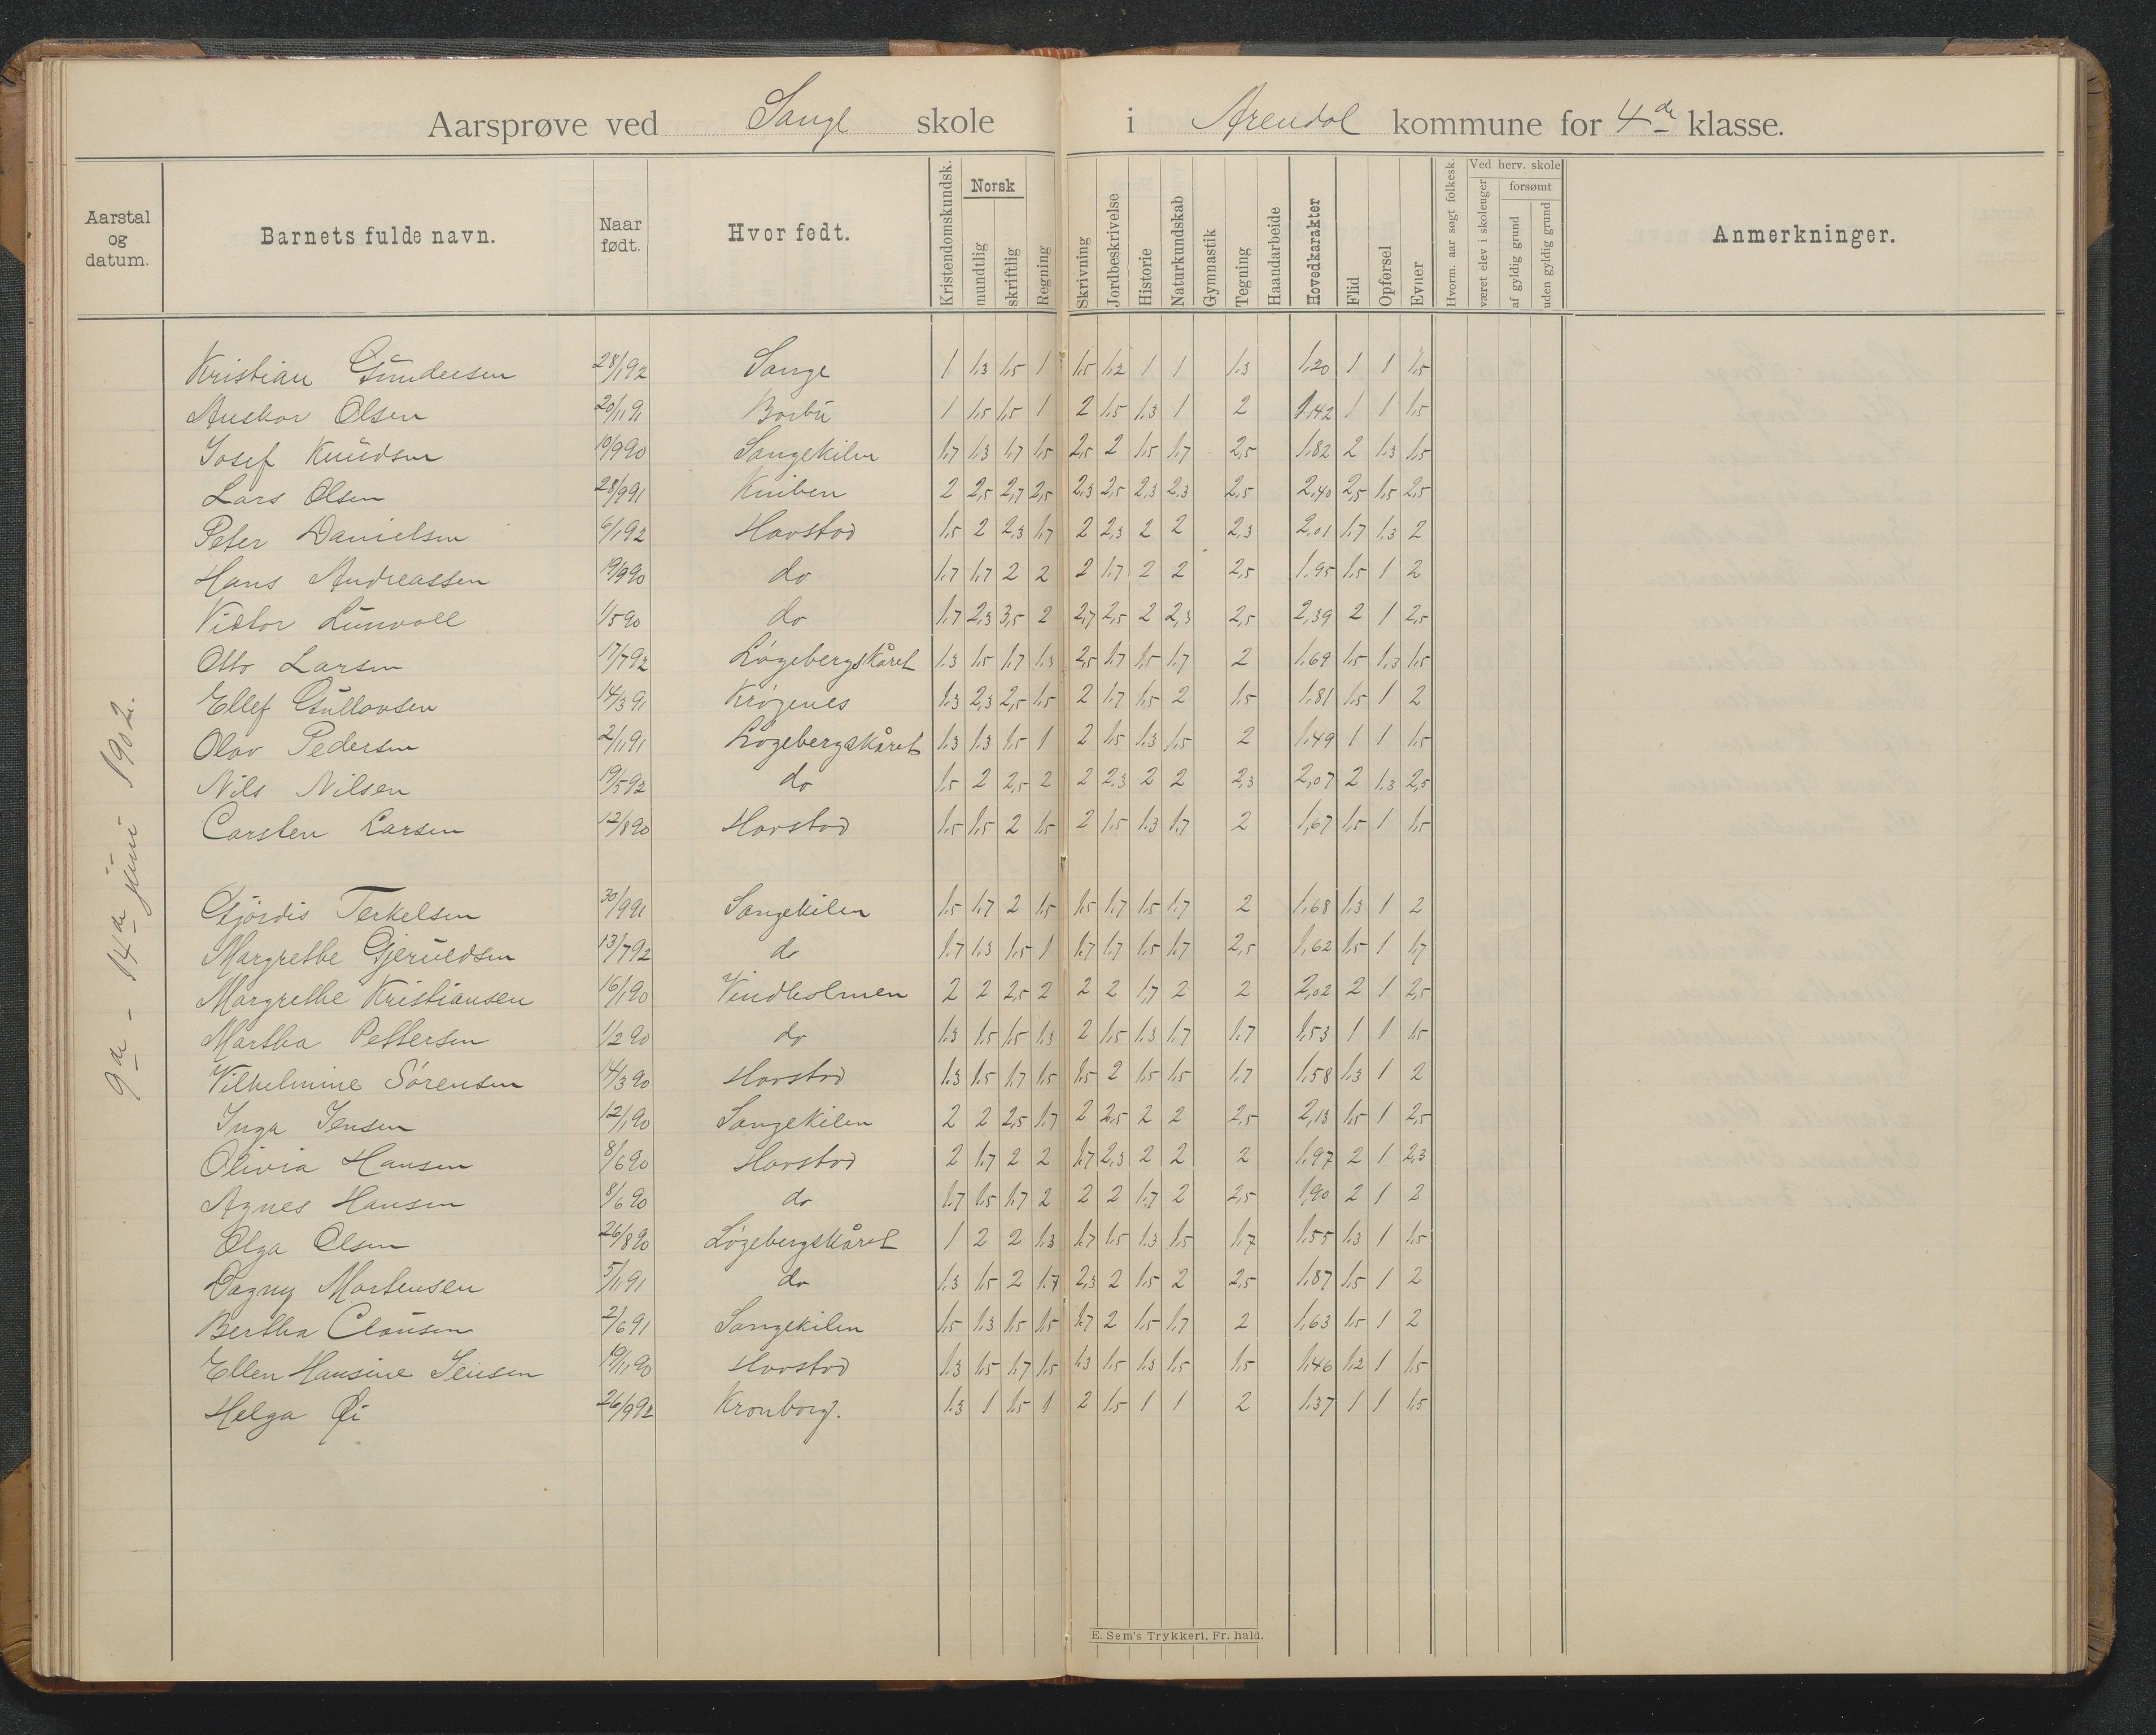 Aarsprøve ved Sange skole i Arendal kommune for 4de klasse.
Aarstal og datum. Barnets fulde navn. Naar født. Hvor født. Kristendomskundsk. Norsk mundtlig skriftlig Regning Skrivning Jordbeskrivelse Historie Naturkundskab Gymnastik Tegning Haandarbeide Hovedkarakter Flid Opførsel Evner Hvorm. aar søgt folkesk. Ved herv. skole været elev i skoleuger forsømt af gyldig grund uden gyldig grund Anmerkninger.
9de - 14de juni 1902.
Kristian Gundersen 28/1 92 Sange 1 1.3 1.5 1 1.5 1.2 1 1 1.3 1.20 1 1 1.5
Anskar Olsen 20/11 91 Barbu 1 1.5 1.5 1 2 1.5 1.3 1 2 1.42 1 1 1.5
Josef Knudsen 10/9 90 Sangekilen 1.7 1.3 1.7 1.5 2,5 2 1.5 1.7 2,5 1.82 2 1.3 1.5
Lars Olsen 28/9 91 Kniben 2 2,5 2,7 2,5 2,3 2,5 2,3 2,3 2,5 2,40 2,5 1.5 2,5
Peter Danielsen 6/1 92 Havstad 1.5 2 2,3 1.7 2 2,3 2 2 2,3 2,01 1.7 1.3 2
Hans Andreassen 19/9 90 do 1.7 1.7 2 2 2 1.7 2 2 2,5 1.95 1.5 1 2
Victor Lunvall 1/5 90 do 1.7 2,3 3,5 2 2,7 2,5 2 2,3 2,5 2,39 2 1 2,5
Otto Larsen 17/7 92 Løgebergskåret 1.3 1.5 1.7 1.3 2,5 1.7 1.5 1.7 2 1.69 1.5 1.3 1.5
Ellef Gullovsen 14/3 91 Krøgenes 1.3 2,3 2,5 1.5 2 1.7 1.5 2 1.5 1.81 1.5 1 2
Olav Pedersen 2/11 91 Løgebergskåret 1.3 1.3 1.5 1 2 1.5 1.3 1.5 2 1.49 1 1 1.5
Nils Nilsen 19/5 92 do 1.5 2 2,5 2 2 2,3 2 2 2,3 2,07 2 1.3 2,5
Carsten Larsen 12/8 90 Havstad 1.5 1.5 2 1.5 2 1.5 1.3 1.7 2 1,67 1.5 1 1.5
Hjørdis Terkelsen 30/9 91 Sangekilen 1.5 1.7 2 1.5 1.5 1.7 1.5 1.7 2 1.68 1.3 1 2
Margrethe Gjeruldsen 13/7 92 do 1.7 1.3 1.5 1 1.7 1.7 1.5 1.7 2,5 1,62 1.5 1 1.7
Margrethe Kristiansen 16/1 90 Vindholmen 2 2 2,5 2 2 2 1,7 2 2 2,02 2 1 2,5
Martha Pettersen 1/2 90 do 1.3 1.5 1.5 1.3 2 1.5 1.3 1.7 1.7 1.53 1 1 1.5
Vilhelmine Sørensen 14/3 90 Havstad 1.3 1.5 1.7 1.5 1.5 2 1.5 1.5 1.7 1.58 1.3 1 2
Inga Jensen 12/1 90 Sangekilen 2 2 2,5 1.7 2 2,5 2 2 2,5 2,13 1.5 1 2,5
Olivia Hansen 8/6 90 Havstad 2 1.7 2 2 1.7 2,3 2 2 2 1.97 2 1 2,3
Agnes Hansen 8/6 90 do 1.7 1.5 1.7 2 2 2 1.7 2 2,5 1,90 2 1 2
Olga Olsen 26/8 90 Løgebergskåret 1 2 2 1.3 1.7 1.5 1.3 1.5 1.7 1.55 1.3 1 1.5
Dagny Mortensen 5/11 91 do 1.3 1.5 2 1.7 2,3 2 1.5 2 2,5 1.87 1.5 1 2
Bertha Clausen 2/6 91 Sangekilen 1.5 1.3 1.5 1.5 1.7 2 1.5 1.7 2 1,63 1.5 1 2
Ellen Hansine Jensen 19/11 90 Havstad 1.3 1.5 1.7 1.5 1.3 1.5 1.3 1.5 1.5 1.46 1.2 1 1.5
Helga Øi 26/9 92 Kronborg. 1.3 1 1.5 1 2 1.5 1 1 2 1.37 1 1 1.5
E. Sem's Trykkeri, Fr. hald.